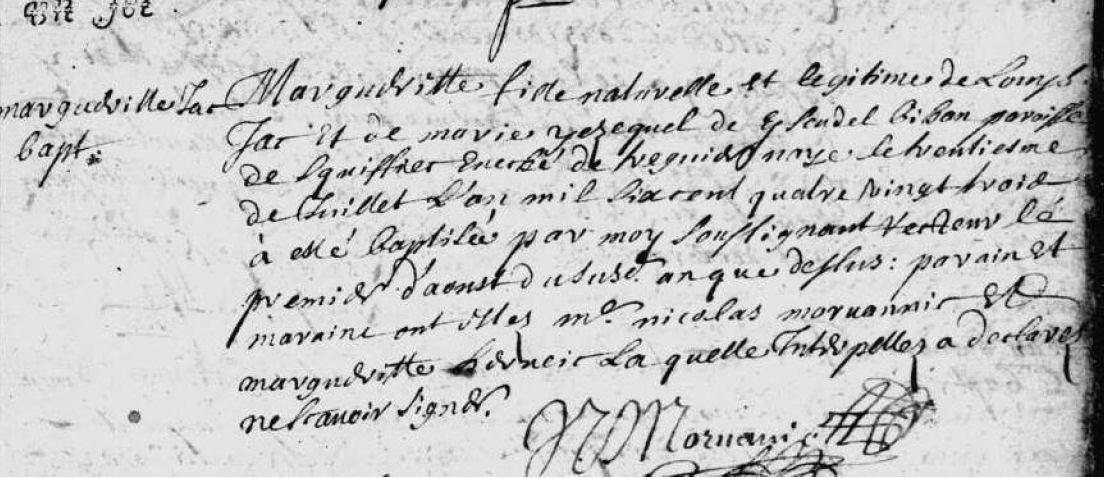 margueritte Jac
bapt.
Margueritte fille naturelle et legitime de Louys
Jac Et de marie yezequel de bihan paroisse
de Squiffiec Eveché de treguier naye le trentiesme
de Juillet L'an mil six cent quatre vingt trois
à esté baptisée par moy soussignant recteur le
premier d'aoust dususd. an que dessus: parain et
maraine ont estes mr. nicolas morvannic et
margueritte herveic La quelle Interpelles a declares
ne scavoir signer.
N Morvannic